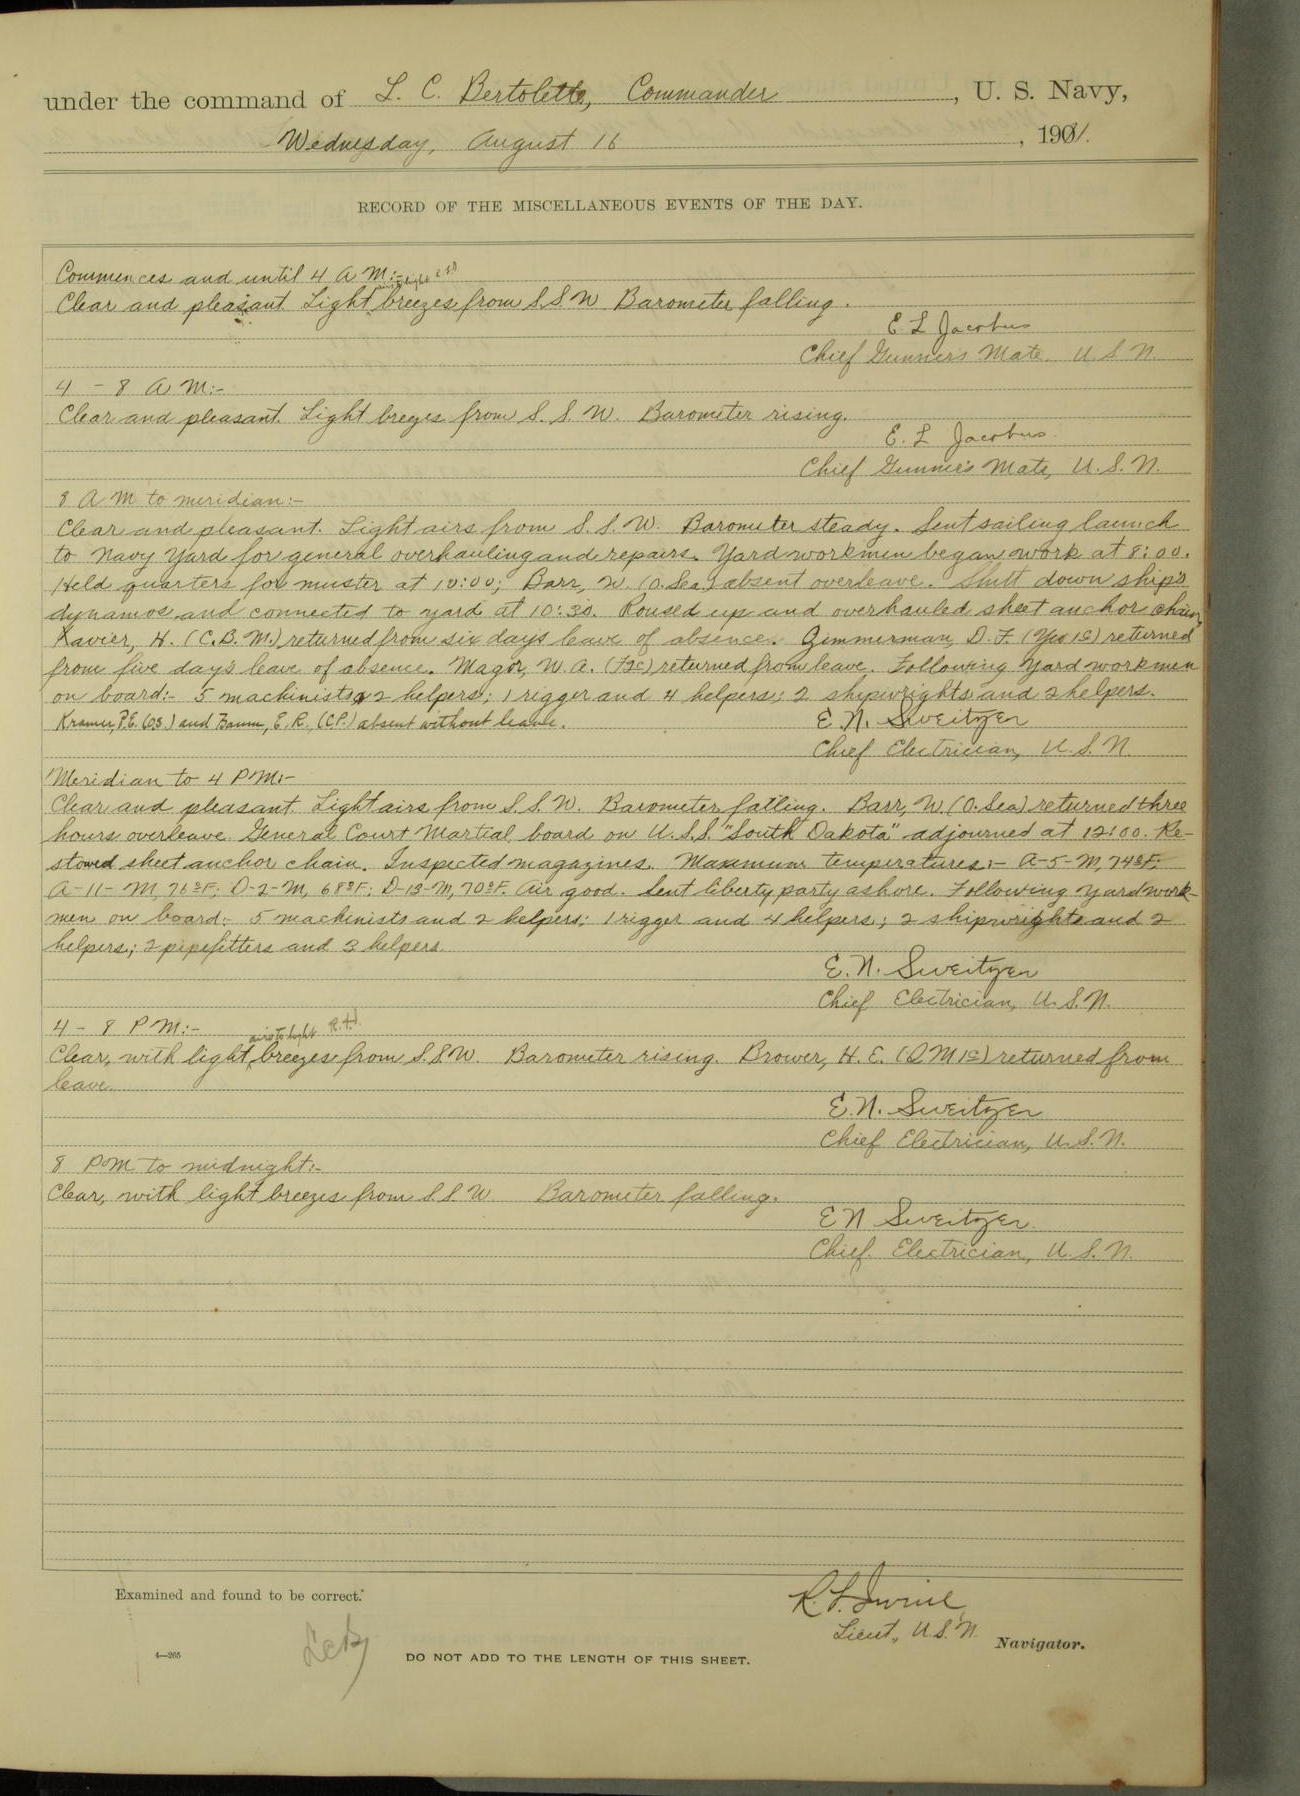 under the command of L. C. Bertolette, Commander, U. S. Navy,
Wednesday, August 16, 1911.
RECORD OF THE MISCELLANEOUS EVENTS OF THE DAY.
Commences and until 4 A M:-
Clear and pleasant. Light breezes from S.S.W. Barometer falling.
E L Jacobus
Chief Gunner's Mate U.S.N.
4 - 8 A M:-
Clear and pleasant. Light breezes from S.S.W. Barometer rising.
E. L Jacobus
Chief Gunner's Mate, U.S.N.
8 A M to meridian:-
Clear and pleasant. Light airs from S.S.W. Barometer steady. Sent sailing launch
to Navy Yard for general overhauling and repairs. Yard workmen began work at 8:00.
Held quarters for muster at 10:00; Barr, W. (O.Sea.) absent overleave. Shut down ship's
dynamos and connected to yard at 10:30. Roused up and overhauled sheet anchor chain.
Xavier, H. (C.B.M.) returned from six days leave of absence. Zimmerman, D. F. (Yeo 1c) returned
from five day's leave of absence. Magor, W. A. (F2c) returned from leave. Following Yard workmen
on board:- 5 machinists, 2 helpers; 1 rigger and 4 helpers; 2 shipwrights and 2 helpers.
Kramer, P.E. (OS) and Baum, E.R. (CP) absent without leave.
E. N. Sweitzer
Chief Electrician, U.S.N.
Meridian to 4 P M:-
Clear and pleasant. Light airs from S.S.W. Barometer falling. Barr, W (O.Sea) returned three
hours overleave. General Court Martial board on U.S.S. "South Dakota" adjourned at 12:00. Re-
stowed sheet anchor chain. Inspected magazines. Maximum temperatures:- A-5-M, 74°F;
A-11-M, 76°F; D-2-M, 68°F; D-13-M, 70°F. Air good. Sent liberty party ashore. Following Yard work-
men on board:- 5 machinists and 2 helpers; 1 rigger and 4 helpers; 2 shipwrights and 2
helpers; 2 pipefitters and 3 helpers.
E. N. Sweitzer
Chief Electrician, U.S.N.
4 - 8 P M:-
airs to light
Clear, with light breezes from S.S.W. Barometer rising. Brower, H. E. (QM1c) returned from
leave.
E. N. Sweitzer
Chief Electrician, U.S.N.
8 P M to midnight:-
Clear, with light breezes from S.S.W. Barometer falling.
E N Sweitzer
Chief Electrician, U.S.N.
Examined and found to be correct.
LCB
Lieut., U.S.N. Navigator.
4—265
DO NOT ADD TO THE LENGTH OF THIS SHEET.